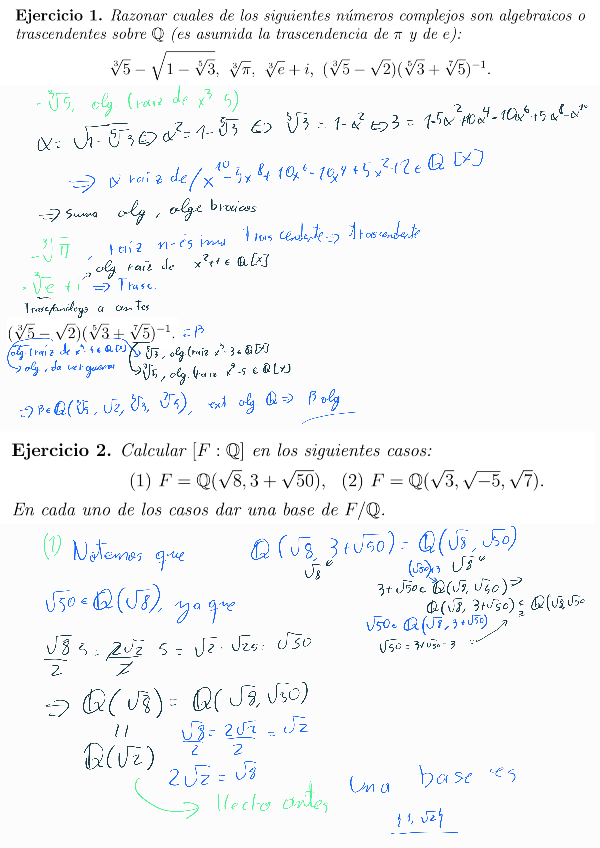 Ejercicio 1. Razonar cuales de los siguientes números complejos son algebraicos o
trascendentes sobre ℚ (es asumida la trascendencia de π y de e):
∛5 − √(1 − ⁵√3), ∛π, ∛e + i, (∛5 − √2)(⁵√3 + ⁷√5)⁻¹.
- ∛5, alg (raiz de x³-5)
α = √(1-⁵√3) ⇔ α² = 1-⁵√3 ⇔ ⁵√3 = 1-α² ⇔ 3 = 1-5α²+10α⁴-10α⁶+5α⁸-α¹⁰
⇒ α raiz de / x¹⁰-5x⁸+10x⁶-10x⁴+5x²+2 ∈ ℚ[x]
⇒ suma alg, algebraicos
- ∛π raíz n-ésima trascendente ⇒ trascendente
alg raiz de x²+1 ∈ ℚ[x]
- ∛e + i ⇒ Trasc.
Trasc, análogo a antes
(∛5 − √2)(⁵√3 + ⁷√5)⁻¹. = β
alg. (raiz de x³-5 ∈ ℚ[x]) ⁵√3, alg (raiz x⁵-3 ∈ ℚ[x]
⁷√5, alg. (raiz x⁷-5 ∈ ℚ[x]
⇒ β ∈ ℚ(∛5, √2, ⁵√3, ⁷√5), ext alg ℚ ⇒ β alg
Ejercicio 2. Calcular [F : ℚ] en los siguientes casos:
(1) F = ℚ(√8, 3 + √50), (2) F = ℚ(√3, √−5, √7).
En cada uno de los casos dar una base de F/ℚ.
(1) Notemos que ℚ(√8, 3+√50) = ℚ(√8, √50)
√50 ∈ ℚ(√8), ya que
3+√50 ∈ ℚ(√8, √50) ⇒
ℚ(√8, 3+√50) ⊆ ℚ(√8, √50
√50 ∈ ℚ(√8, 3+√50)
√50 = 3+√50-3
√8/2 5 = 2√2/2 5 = √2·√25 = √50
⇒ ℚ(√8) = ℚ(√8, √50)
=
ℚ(√2)
√8/2 = 2√2/2 = √2
2√2 = √8
hecho antes
Una base es
{1, √2}